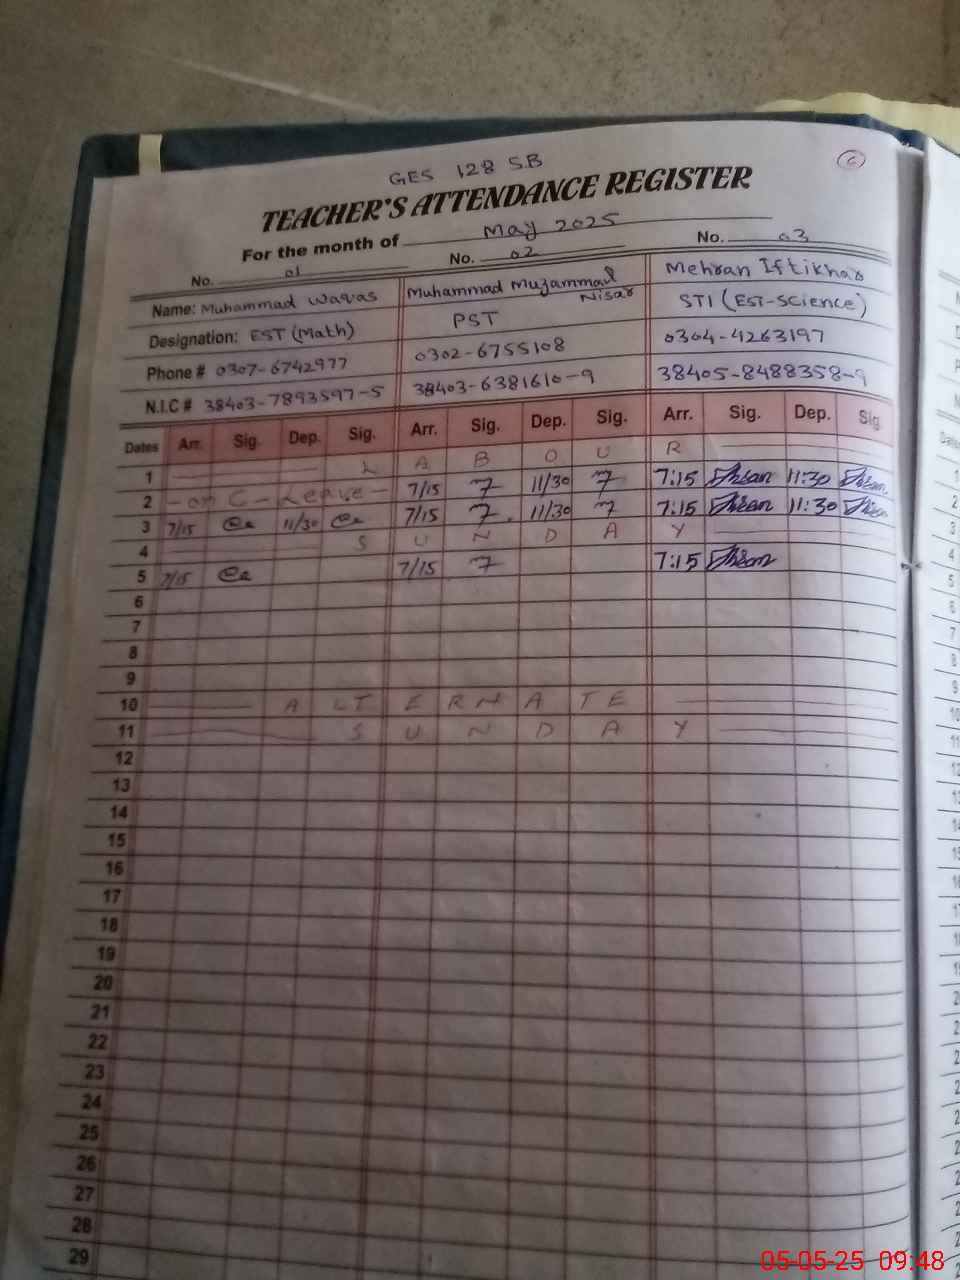 6
GES 128 S.B
TEACHER'S ATTENDANCE REGISTER
For the month of May 2025
No. 01 No. 02 No. 03
Name: Muhammad Waqas Muhammad Muzammal Nisar Mehran Iftikhar
Designation: EST (Math) PST STI (EST-Science)
Phone # 0307-6742977 0302-6755108 0304-4263197
N.I.C # 38403-7893597-5 38403-6381610-9 38405-8488358-9
Dates Arr. Sig. Dep. Sig. Arr. Sig. Dep. Sig. Arr. Sig. Dep. Sig.
1 L A B O U R
2 on C-Leave 7/15 11/30 7:15 11:30
3 7/15 11/30 7/15 11/30 7:15 11:30
4 S U N D A Y
5 7/15 7/15 7:15
6
7
8
9
10 A L T E R N A T E
11 S U N D A Y
12
13
14
15
16
17
18
19
20
21
22
23
24
25
26
27
28
29
05-05-25 09:48